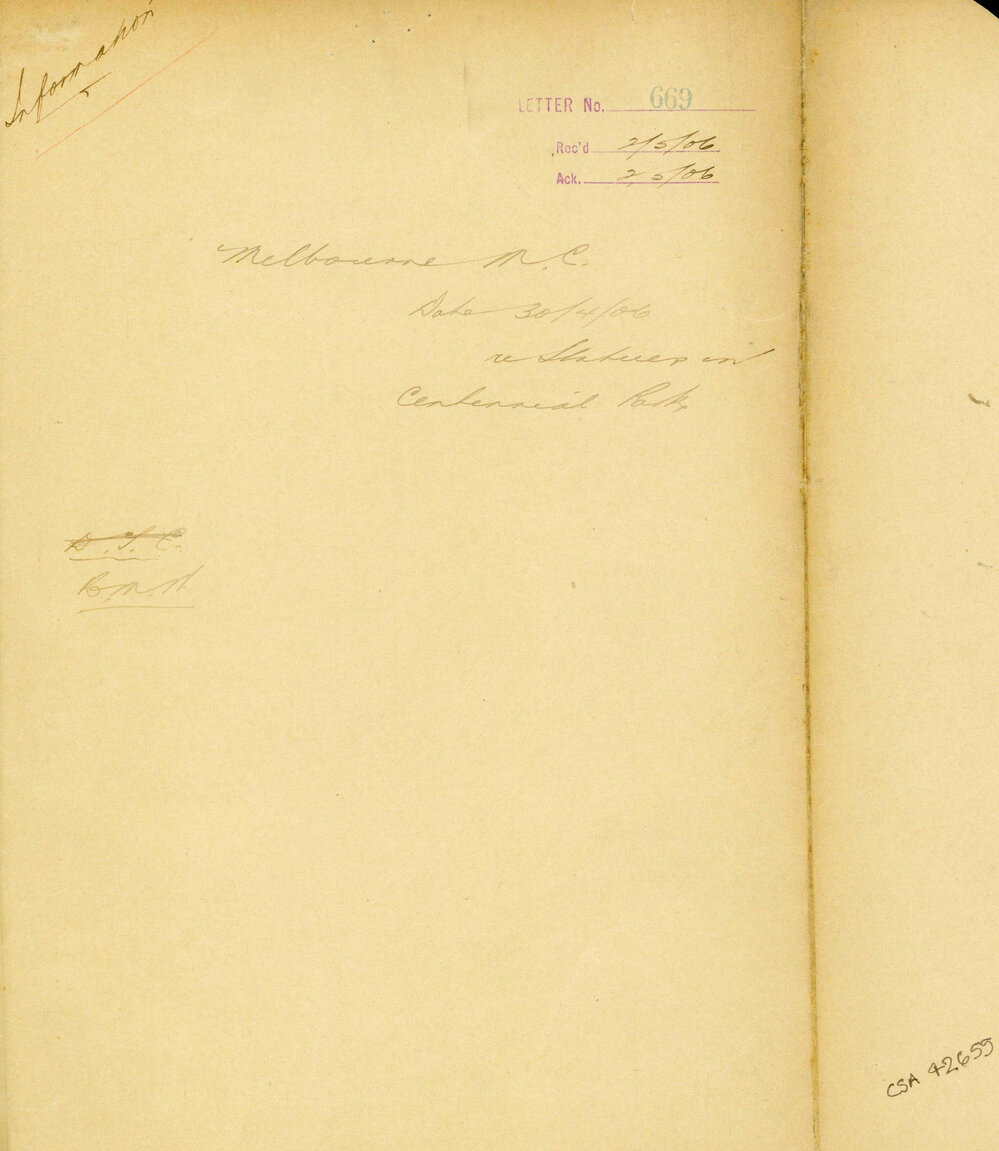 Information
LETTER No. 669
Rec'd 2/5/06
Ack. 2 5/06
Melbourne M.C.
Date 30/4/06
re Statues in
Centennial Park
D.T.C.
CSA 42655